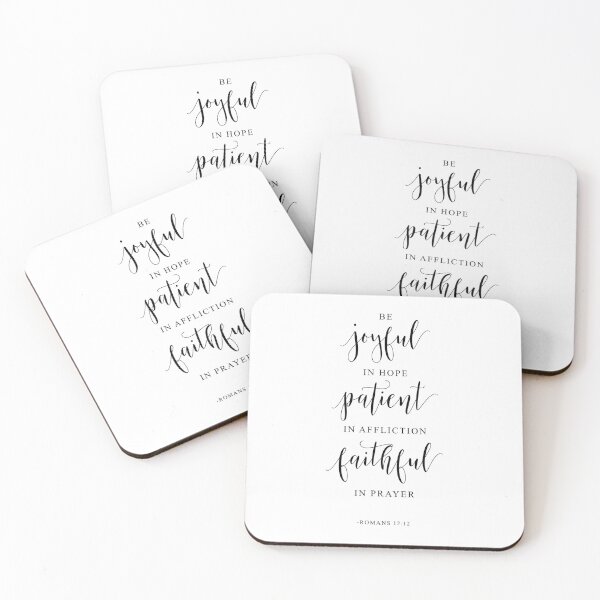 BE
joyful
IN HOPE
patient
BE
joyful
IN HOPE
patient
IN AFFLICTION
faithful
BE
joyful
IN HOPE
patient
IN AFFLICTION
faithful
IN PRAYER
-ROMANS
BE
joyful
IN HOPE
patient
IN AFFLICTION
faithful
IN PRAYER
-ROMANS 12:12